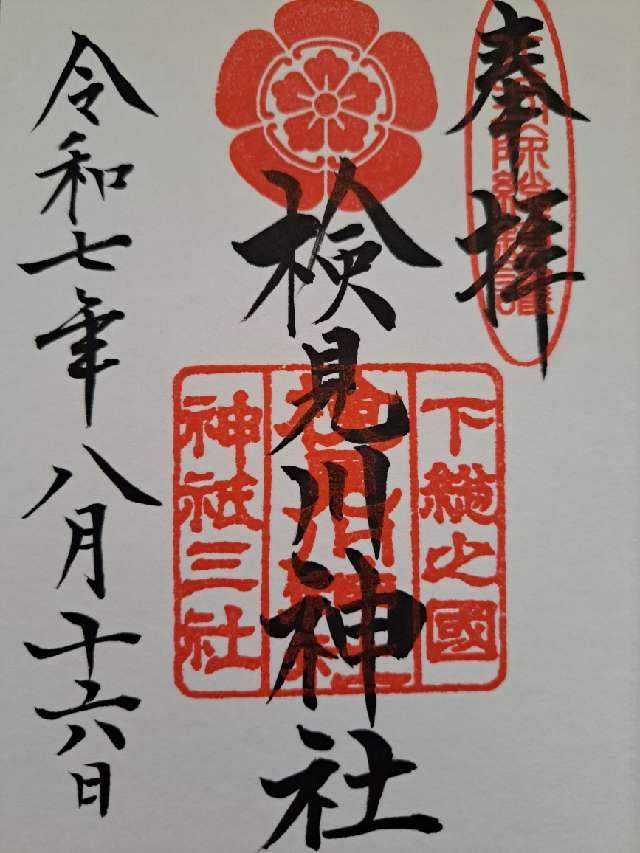 奉拝
検見川神社
下総之國
神祇三社
令和七年八月十六日